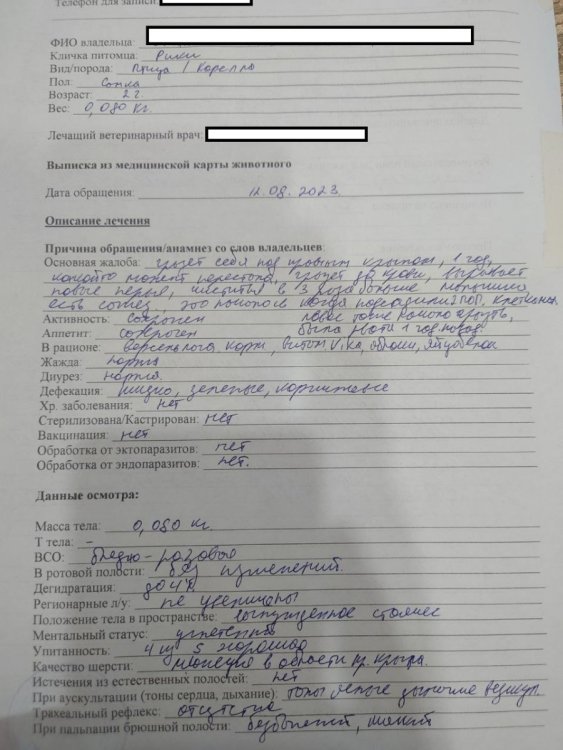 Телефон для записи:
ФИО владельца:
Кличка питомца: Рикки
Вид/порода: птица / Корелла
Пол: Самка
Возраст: 2 г.
Вес: 0,080 кг.
Лечащий ветеринарный врач:
Выписка из медицинской карты животного
Дата обращения: 12.08.2023.
Описание лечения
Причина обращения/анамнез со слов владельцев:
Основная жалоба: грызет себя под правым крылом, 1 год,
момент перестала, грызет до крови, вырывает
новые перья, в 3 раза больше
есть самец, это началось когда
Активность: сохранен
Аппетит: сохранен 1 год назад
В рационе: корм, витам Vika,
Жажда: норма
Диурез: норма
Дефекация: жидко, зеленые, коричневые
Хр. заболевания: нет
Стерилизована/Кастрирован: нет
Вакцинация: нет
Обработка от эктопаразитов: нет
Обработка от эндопаразитов: нет.
Данные осмотра:
Масса тела: 0,080 кг.
Т тела: –
ВСО: бледно-розовые
В ротовой полости: без изменений.
Дегидратация: до 4%
Регионарные л/у: не увеличены
Положение тела в пространстве: вынужденное стоячее
Ментальный статус: угнетенный
Упитанность: 4 из 5 хорошая
Качество шерсти: в области пр. крыла.
Истечения из естественных полостей: нет
При аускультации (тоны сердца, дыхание): тоны ясные дыхание везикул.
Трахеальный рефлекс: отсутствие
При пальпации брюшной полости: безболезн, мягкий